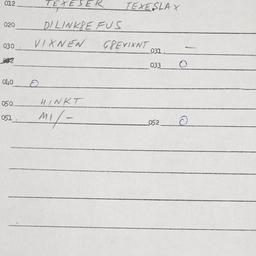 012 TEXESER TEXESLAX
020 DILINKBE FUS
030 VIXNEN GREVIXNT 031 —
033 0
040 0
050 HINKT
051 MI/- 052 0